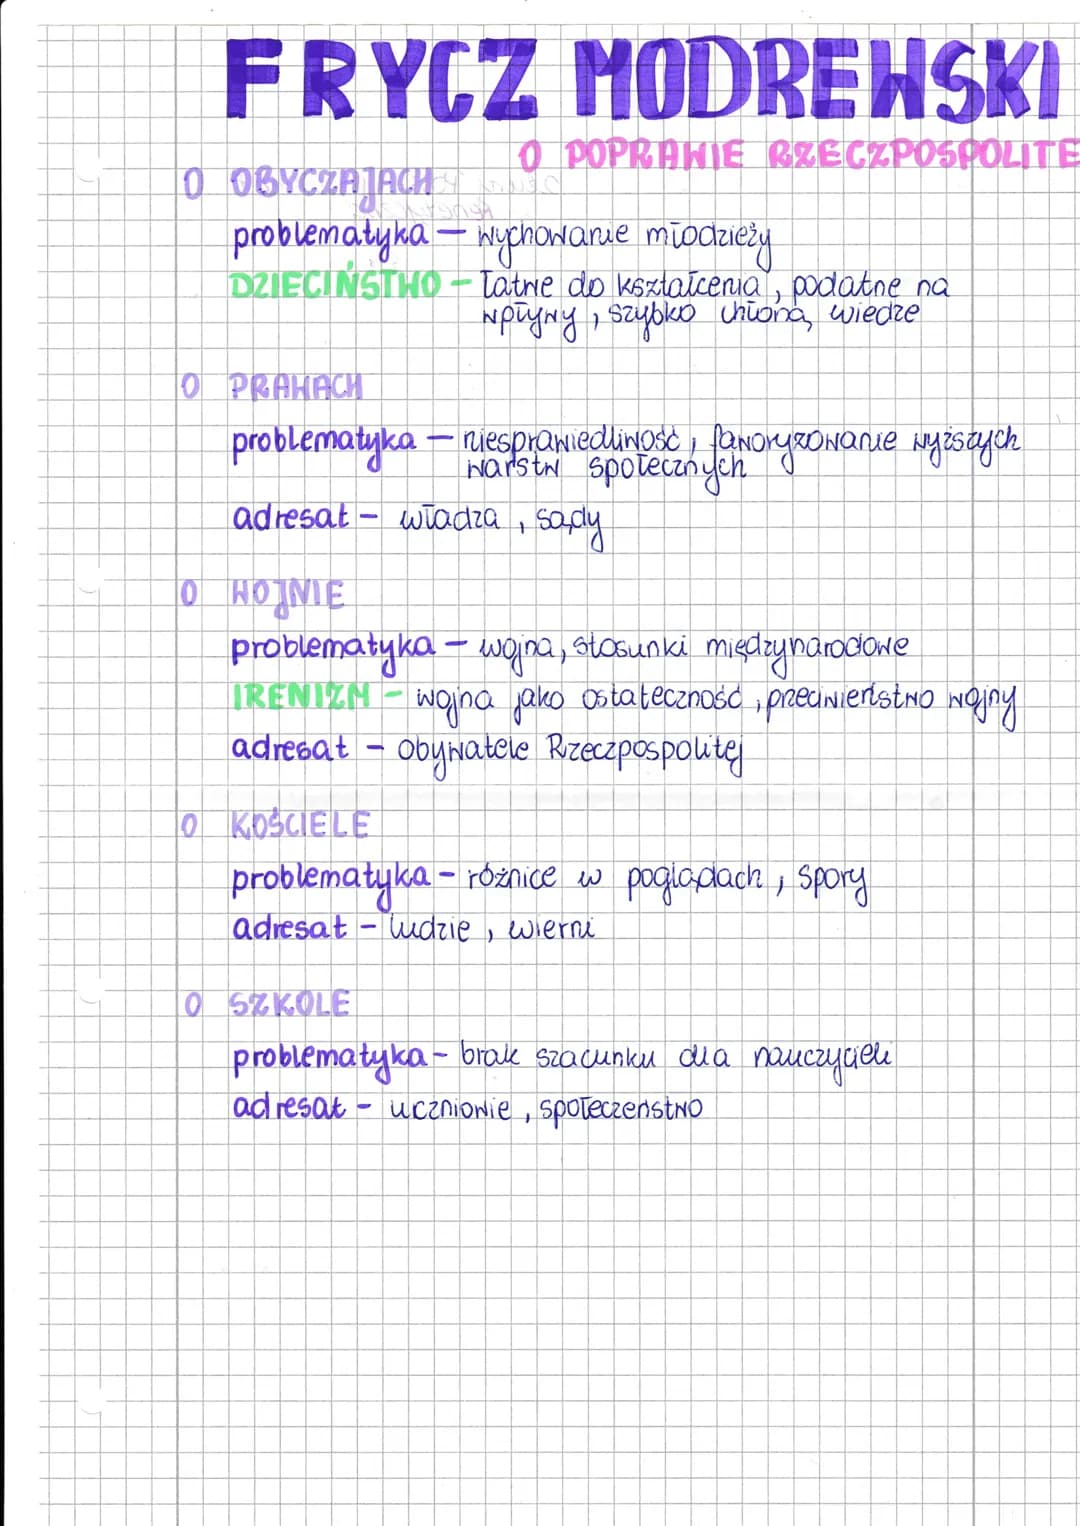 FRYCZ MODREWSKI
O POPRAWIE RZECZPOSPOLITE
O OBYCZAJACH
problematyka — wychowanie młodzieży
DZIECIŃSTWO – łatwe do kształcenia, podatne na
wpływy, szybko chłoną wiedze
O PRAWACH
problematyka — niesprawiedliwość, faworyzowanie wyższych
warstw społecznych
adresat – władza, sądy
O WOJNIE
problematyka – wojna, stosunki międzynarodowe
IRENIZM – wojna jako ostateczność, przeciwieństwo wojny
adresat – obywatele Rzeczpospolitej
O KOŚCIELE
problematyka – różnice w poglądach, spory
adresat – ludzie, wierni
O SZKOLE
problematyka – brak szacunku dla nauczycieli
adresat – uczniowie, społeczeństwo